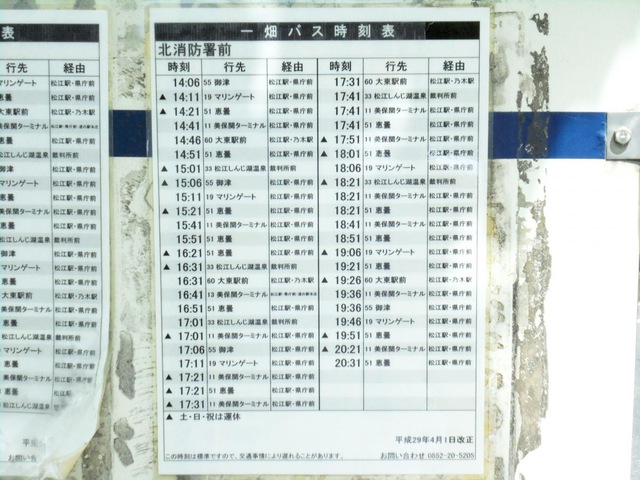 表
行先 経由
マリンゲート 松江駅・県庁前
恵曇 松江駅・県庁前
大東駅前 松江駅・乃木駅
美保関ターミナル
恵曇 松江駅・県庁前
松江しんじ湖温泉 裁判所前
御津 松江駅・県庁前
マリンゲート 松江駅・県庁前
恵曇 松江駅・県庁前
美保関ターミナル 松江駅・県庁前
恵曇 松江駅・県庁前
平成
お問い合
一畑バス時刻表
北消防署前
時刻 行先 経由 時刻 行先 経由
14:06 55 御津 松江駅・県庁前 17:31 60 大東駅前 松江駅・乃木駅
▲ 14:11 19 マリンゲート 松江駅・県庁前 17:41 33 松江しんじ湖温泉 裁判所前
▲ 14:21 51 恵曇 松江駅・県庁前 17:41 11 美保関ターミナル 松江駅・県庁前
14:41 11 美保関ターミナル 松江駅・県庁前 17:41 51 恵曇 松江駅・県庁前
14:46 60 大東駅前 松江駅・乃木駅 ▲ 17:51 11 美保関ターミナル 松江駅・県庁前
14:51 51 恵曇 松江駅・県庁前 ▲ 18:01 51 恵曇 松江駅・県庁前
▲ 15:01 33 松江しんじ湖温泉 裁判所前 18:06 19 マリンゲート 松江駅・県庁前
▲ 15:06 55 御津 松江駅・県庁前 ▲ 18:21 33 松江しんじ湖温泉 裁判所前
15:11 19 マリンゲート 松江駅・県庁前 18:21 11 美保関ターミナル 松江駅・県庁前
▲ 15:21 51 恵曇 松江駅・県庁前 18:21 51 恵曇 松江駅・県庁前
15:41 11 美保関ターミナル 松江駅・県庁前 18:41 11 美保関ターミナル 松江駅・県庁前
15:51 51 恵曇 松江駅・県庁前 18:51 51 恵曇 松江駅・県庁前
▲ 16:21 51 恵曇 松江駅・県庁前 ▲ 19:06 19 マリンゲート 松江駅・県庁前
▲ 16:31 33 松江しんじ湖温泉 裁判所前 19:21 51 恵曇 松江駅・県庁前
16:31 60 大東駅前 松江駅・乃木駅 ▲ 19:26 60 大東駅前 松江駅・乃木駅
16:41 13 美保関ターミナル 19:36 11 美保関ターミナル 松江駅・県庁前
16:51 51 恵曇 松江駅・県庁前 19:36 55 御津 松江駅・県庁前
17:01 33 松江しんじ湖温泉 裁判所前 19:46 19 マリンゲート 松江駅・県庁前
▲ 17:01 11 美保関ターミナル 松江駅・県庁前 ▲ 19:51 51 恵曇 松江駅・県庁前
17:06 55 御津 松江駅・県庁前 ▲ 20:21 11 美保関ターミナル 松江駅・県庁前
17:11 19 マリンゲート 松江駅・県庁前 20:31 51 恵曇 松江駅・県庁前
▲ 17:21 11 美保関ターミナル 松江駅・県庁前
▲ 17:21 51 恵曇 松江駅・県庁前
▲ 17:31 11 美保関ターミナル 松江駅・県庁前
▲ 土・日・祝は運休
平成29年4月1日改正
この時刻は標準ですので、交通事情により遅れることがあります。 お問い合わせ 0852-20-5205